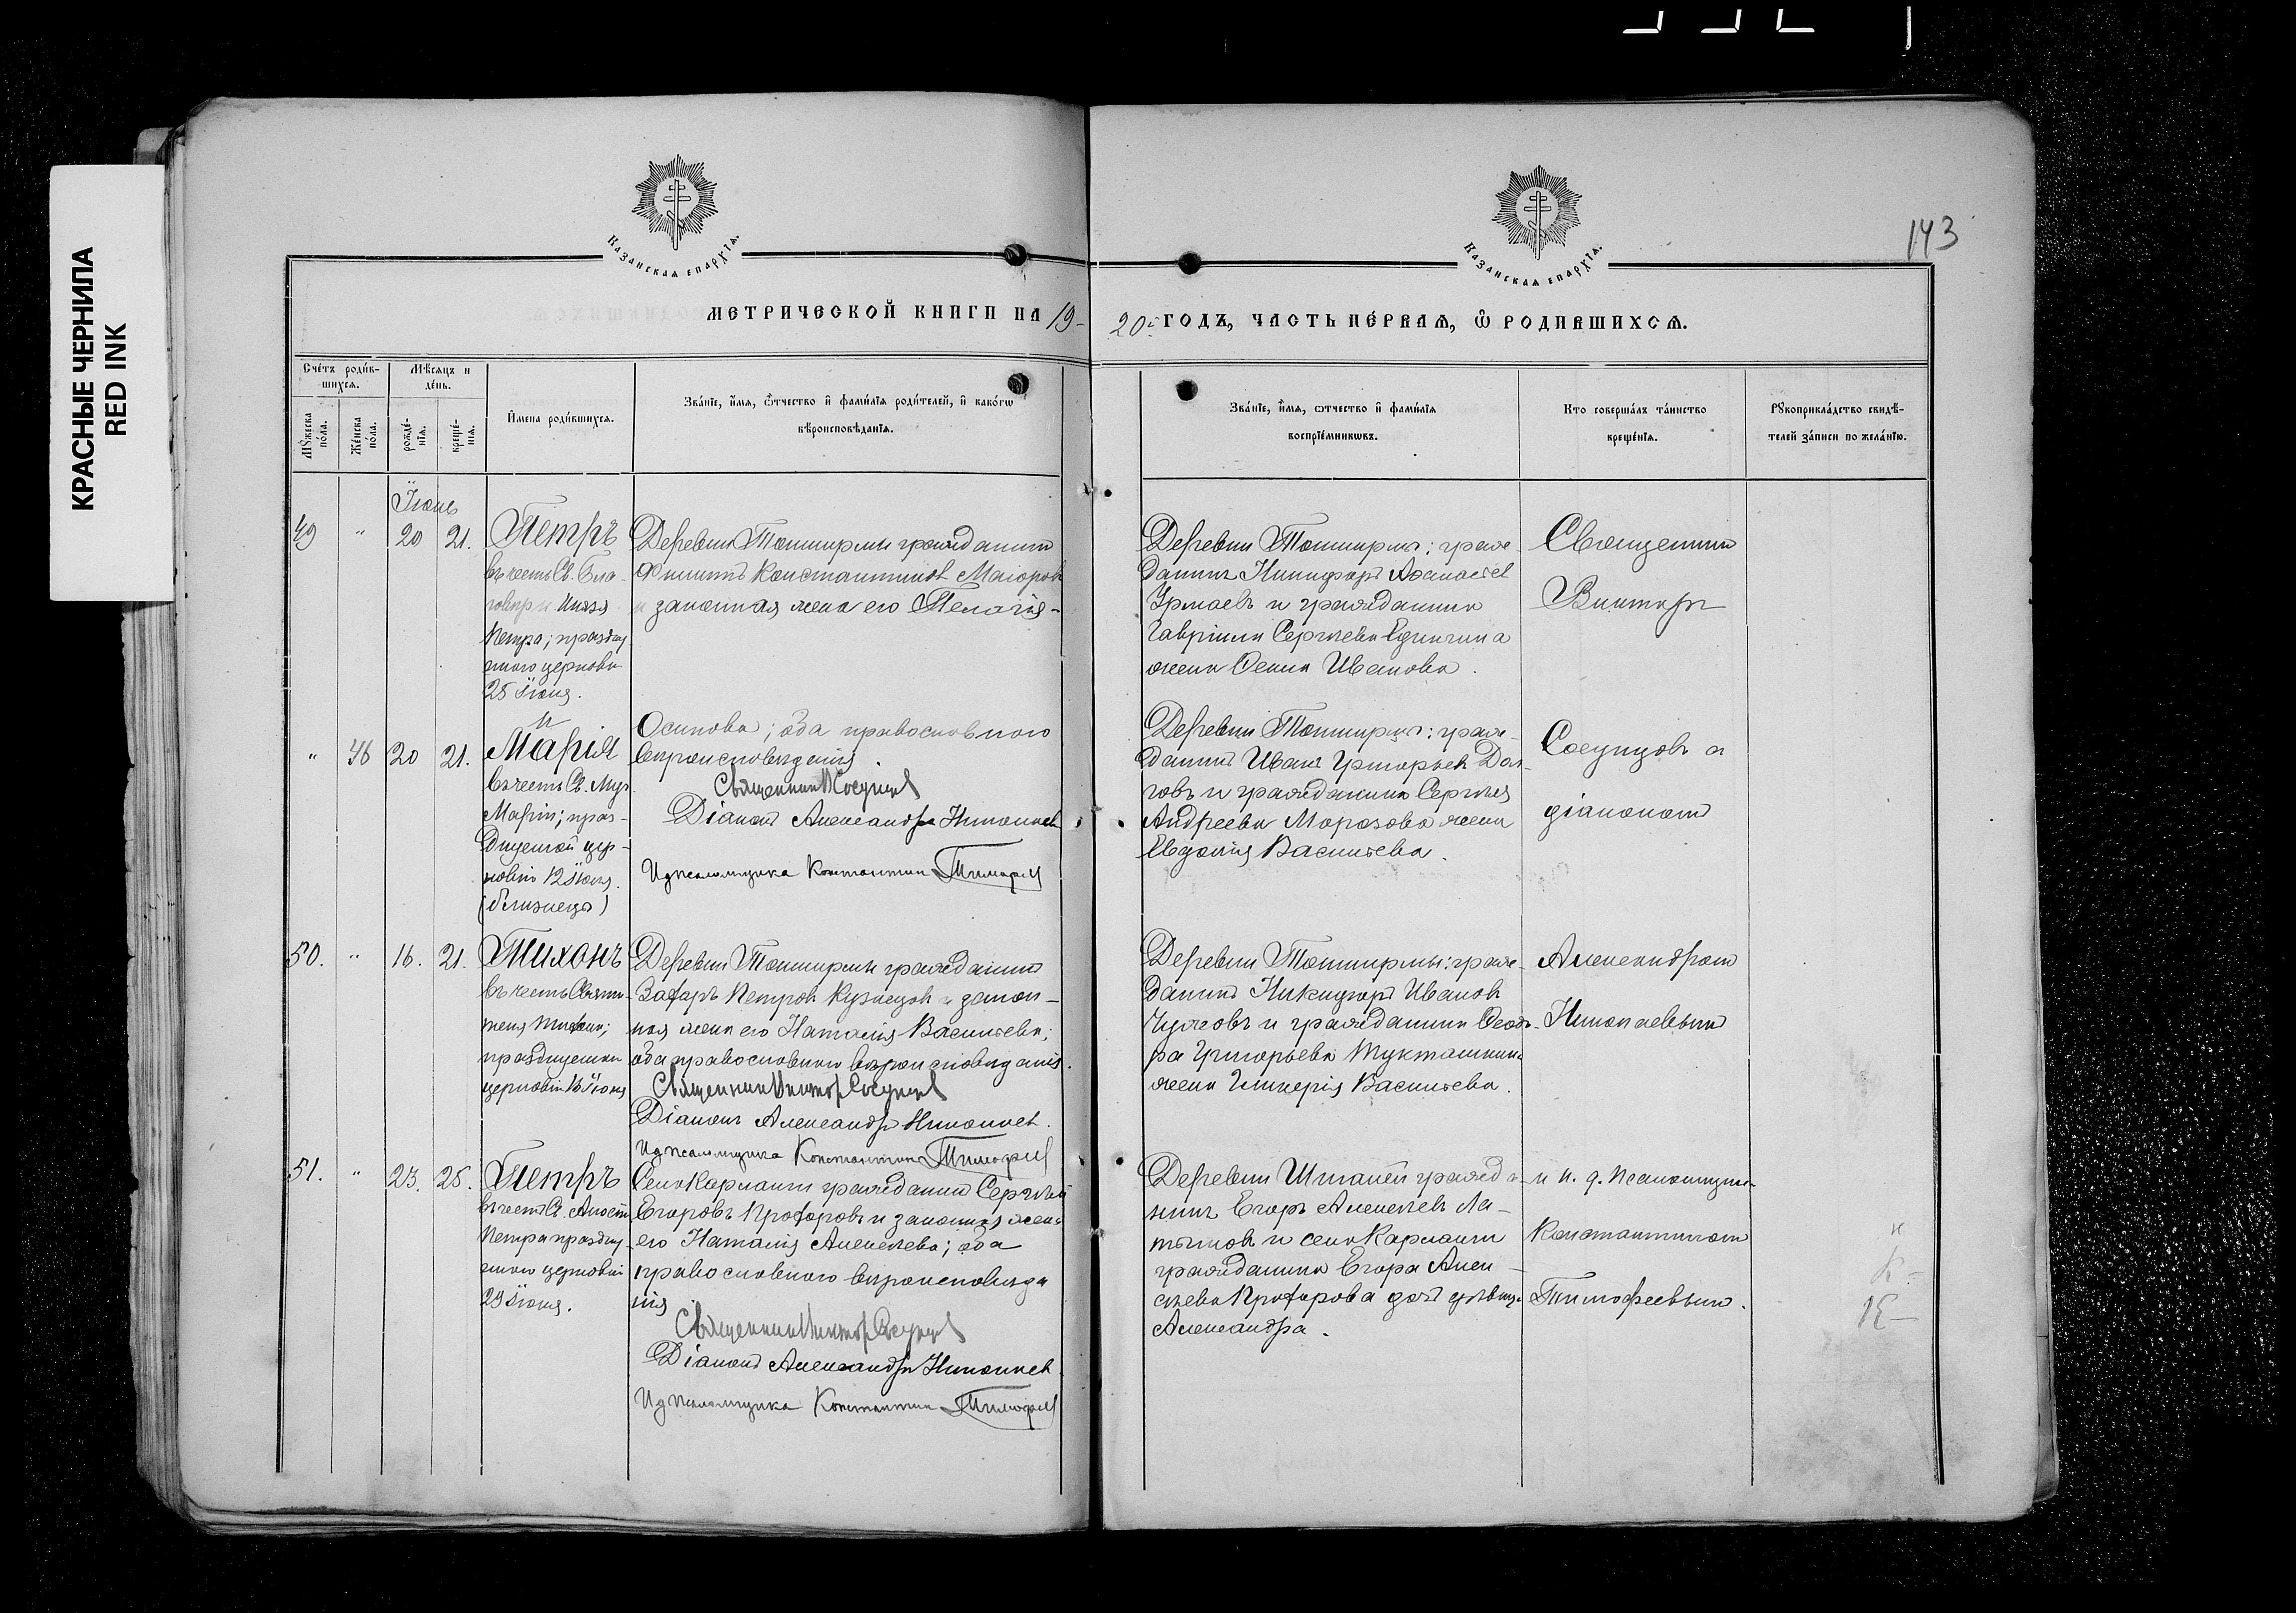 КРАСНЫЕ ЧЕРНИЛА
RED INK
143
Казанская епархїѧ.
Казанская епархїѧ.
МЕТРИЧЕСКОЙ КНИГИ НА 19-
20й ГОДЪ, ЧАСТЬ ПЕ́РВАЯ, Ѽ РОДИВШИХСѦ.
Сче́тъ роди́в-
шихсѧ.
Мѣ́сѧцъ и
де́нь.
Мꙋ́жеска
по́ла.
Же́нска
по́ла.
рожде́-
нїѧ.
креще́-
нїѧ.
И҆мена роди́вшихсѧ.
Зва́нїе, и҆́мѧ, ѻ҆́тчество и҆ фамилїѧ роди́телей, и҆ како́гѡ
вѣроисповѣ́данїѧ.
Зва́нїе, и҆́мѧ, ѻ҆́тчество и҆ фами́лїѧ
воспрїе́мникѡвъ.
Кто соверша́лъ та́инство
креще́нїѧ.
Рꙋкоприкла́дство свидѣ́-
телей за́писи по жела́нїю.
Іюнь
49 " 20 21. Петръ
въ честь Св. Бла-
говѣрн. Князя
Петра; праздну
емаго церковью
25 Іюня.
Деревни Тоншырмы гражданинъ
Филиппъ Константиновъ Маіоровъ
и законная жена его Пелагія-
Деревни Тоншырмы: граж-
данинъ Никифоръ Афанасіев
Урмаевъ и гражданина
Гавріила Сергѣева Еднична
жена Ѳекла Иванова.
Священник
Виктор
" 46 20 21. Марія
въ честь Св. Муч.
Маріи; праз-
днуемой цер-
ковію 12 Іюня.
(близнецы)
Осипова; оба православного
вероисповеданія.
Священник В Сосунцов
Діаконъ Александр Николаев
И д псаломщика Константин Тимофеев
Деревни Тоншырмы: граж-
данинъ Иванъ Григорьев Дол-
говъ и гражданина Сергѣя
Андреева Морозова жена
Евдокія Васильева.
Сосунцовъ с
діаконом
50. " 16. 21. Тихонъ
въ честь Святи-
теля Тихона;
празднуемаго
церковію 16 Іюня
Деревни Тоншырмы гражданинъ
Захаръ Петров Кузнецов и закон-
ная жена его Наталія Васильева;
оба православного вероисповеданія.
Священник Виктор Сосунцов
Діаконъ Александр Николаев.
И д псаломщика Константин Тимофеев
Деревни Тоншырмы: граж-
данинъ Никифоръ Иванов
Чужовъ и гражданина Ѳеодо-
ра Григорьева Тукташкина
жена Гликерія Васильева.
Александром
Николаевым
51. " 23. 25. Петръ
въ честь Св. Апост.
Петра праздну-
емаго церковію
29 Іюня.
Села Кармалы гражданинъ Сергѣй
Егоровъ Прохоровъ и законная жена
его Наталія Алексѣева; оба
православного вероисповеда
нія
Священник Виктор Сосунцов
Діаконъ Александр Николаев
И д псаломщика Константин Тимофеев
Деревни Штаней гражда-
нинъ Егоръ Алексѣев Ла-
тышов и села Кармалы
гражданина Егора Алек-
сѣева Прохорова дочь дѣвица
Александра.
и и. д. псаломщика
Константином
Тимофеевым.